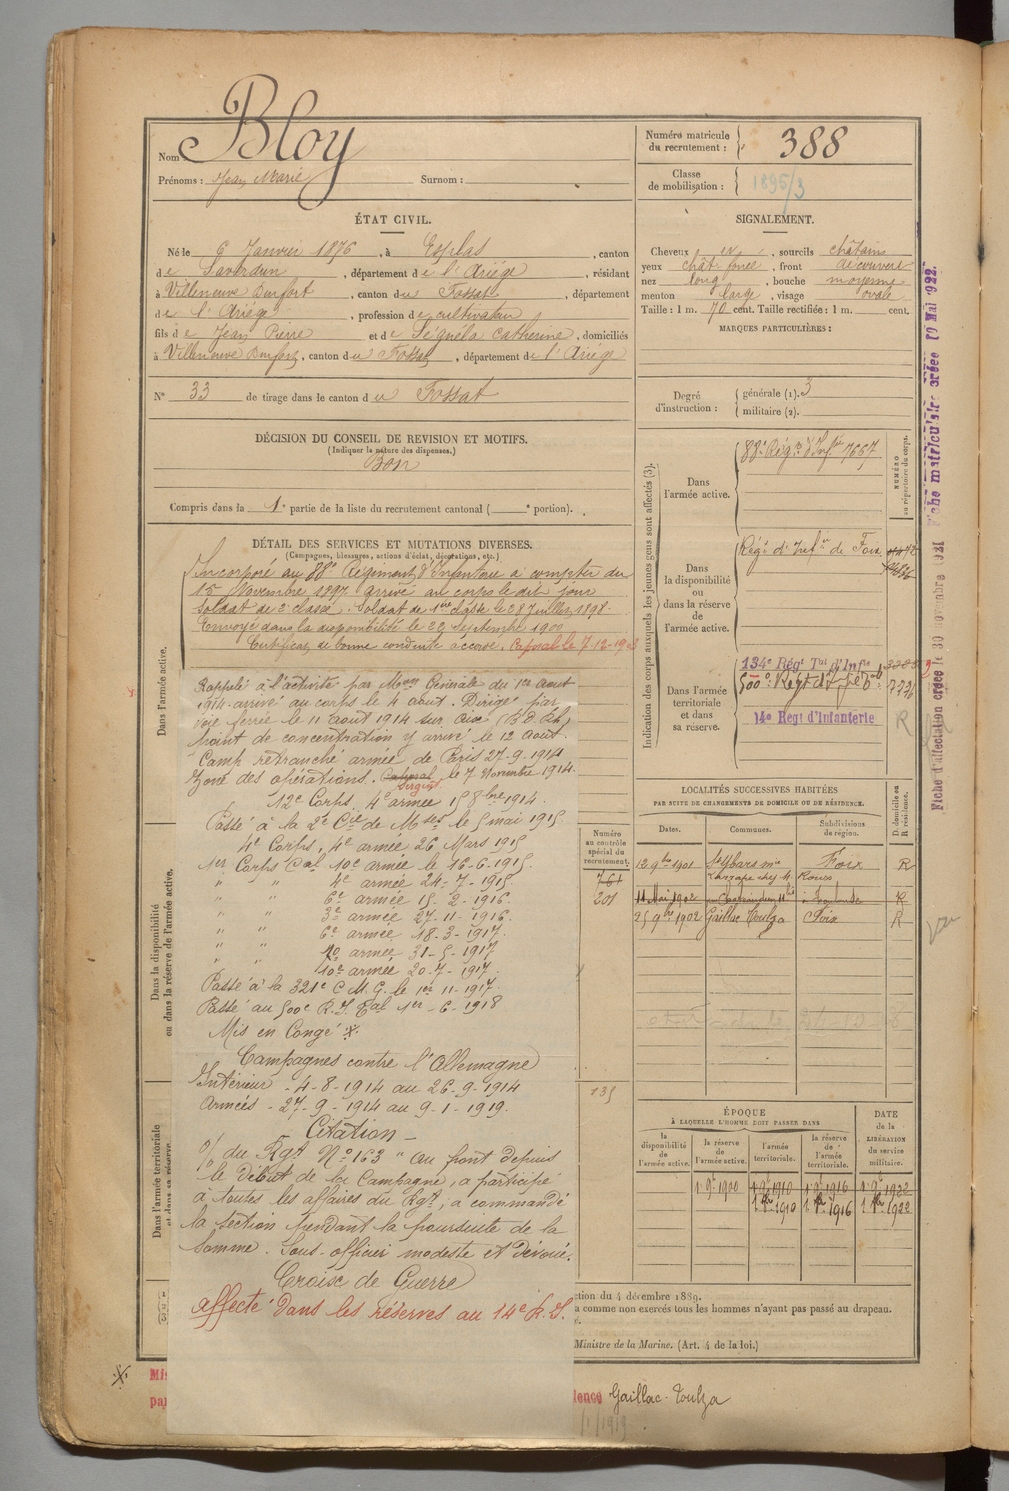 Nom Bloy
Prénoms : Jean Marie Surnom :
Numéro matricule
du recrutement : 388
Classe
de mobilisation : 1895/3
ÉTAT CIVIL.
Né le 6 Janvier 1876, à Esplas, canton
de Saverdun, département de l'Ariège, résidant
à Villeneuve Durfort, canton du Fossat, département
de l'Ariège, profession de cultivateur
fils de Jean Pierre et de Séguéla Catherine, domiciliés
à Villeneuve Durfort, canton du Fossat, département de l'Ariège
N° 33 de tirage dans le canton du Fossat
DÉCISION DU CONSEIL DE REVISION ET MOTIFS.
(Indiquer la nature des dispenses.)
Bon
Compris dans la 1e partie de la liste du recrutement cantonal ( e portion).
SIGNALEMENT.
Cheveux , sourcils châtains
yeux chât foncé, front découvert
nez long, bouche moyenne
menton large, visage ovale
Taille : 1 m. 70 cent. Taille rectifiée : 1 m. cent.
MARQUES PARTICULIÈRES :
Degré
d'instruction :
générale (1). 3
militaire (2).
DÉTAIL DES SERVICES ET MUTATIONS DIVERSES.
(Campagnes, blessures, actions d'éclat, décorations, etc.)
Incorporé au 88e Régiment d'Infanterie à compter du
15 Novembre 1897 arrivé au corps le dit jour
Soldat de 2e classe. Soldat de 1ère classe le 28 Juillet 1898.
Envoyé dans la disponibilité le 22 Septembre 1900
Certificat de bonne conduite accordé. Caporal le 7-12-1903
Rappelé à l'activité par Mon Générale du 1er Août
1914 arrivé au corps le 4 août. Dirigé par
voie ferrée le 11 août 1914 sur Aix (B d Rh)
point de concentration y arrivé le 12 août.
Camp retranché armée de Paris 27-9-1914
Zone des opérations. Caporal le 7 Novembre 1914.
Sergent
12e Corps, 4e armée 15 8bre 1914.
Passé à la 2e Cie de Mses le 5 mai 1915
4e Corps, 4e armée 26 Mars 1915
1er Corps Cal 10e armée le 16-6-1915
" " 4e armée 24-7-1915
" " 6e armée 15-2-1916
" " 3e armée 27-11-1916
" " 6e armée 18-3-1917
" " 10e armée 31-5-1917
" " 10e armée 20-7-1917
Passé à la 321e C M. G. le 1er 11-1917
Passé au 500e R. I. Tal 1er-6-1918
Mis en Congé X.
Campagnes contre l'Allemagne
Intérieur - 4-8-1914 au 26-9-1914
Armées - 27-9-1914 au 9-1-1919.
Citation -
O/ du Rgt No 163 "au front depuis
le début de la Campagne, a participé
à toutes les affaires du Rgt, a commandé
la section pendant la poursuite de la
Somme. Sous-officier modeste et dévoué.
Croix de Guerre
affecté dans les réserves au 14e R. I.
Dans l'armée active.
Dans la disponibilité
ou dans la réserve de l'armée active.
Dans l'armée territoriale
et dans sa réserve.
Indication des corps auxquels les jeunes gens sont affectés (3).
NUMÉRO
au répertoire du corps.
Dans
l'armée active.
88e Régt d'Infrie 7667
Dans
la disponibilité
ou
dans la réserve
de
l'armée active.
Régt d'Infie de Foix
Dans l'armée
territoriale
et dans
sa réserve.
134e Régt Tal d'Infie
500e Regt d'Infie
14e Regt d'Infanterie
R
LOCALITÉS SUCCESSIVES HABITÉES
PAR SUITE DE CHANGEMENTS DE DOMICILE OU DE RÉSIDENCE.
D. domicile ou
R. résidence.
Numéro
au contrôle
spécial du
recrutement.
Dates. Communes. Subdivisions
de région.
761
201
135
12 9bre 1901 St Ybars Foix R
11 Mai 1902 R
25 9bre 1902 Gaillac Toulza Foix R
ÉPOQUE
À LAQUELLE L'HOMME DOIT PASSER DANS
la
disponibilité
de
l'armée active.
la réserve
de
l'armée active.
l'armée
territoriale.
la réserve
de
l'armée
territoriale.
DATE
de la
LIBÉRATION
du service
militaire.
1 9e 1900 1 9e 1910 1 9e 1916 1 9e 1922
1 8bre 1910 1 8bre 1916 1 8bre 1922
ction du 4 décembre 1889.
a comme non exercés tous les hommes n'ayant pas passé au drapeau.
Ministre de la Marine. (Art. 4 de la loi.)
X. Mis
par
dence Gaillac-Toulza
/1/1919
Fiche d'affectation créée le 30 novembre 1921
Fiche matriculaire créée 10 Mai 1922.